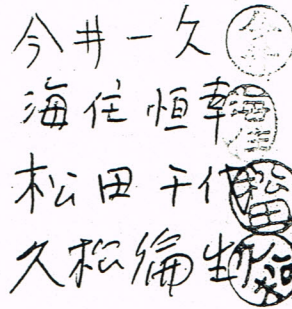 今井一久
海住恒幸
松田千代
久松倫生